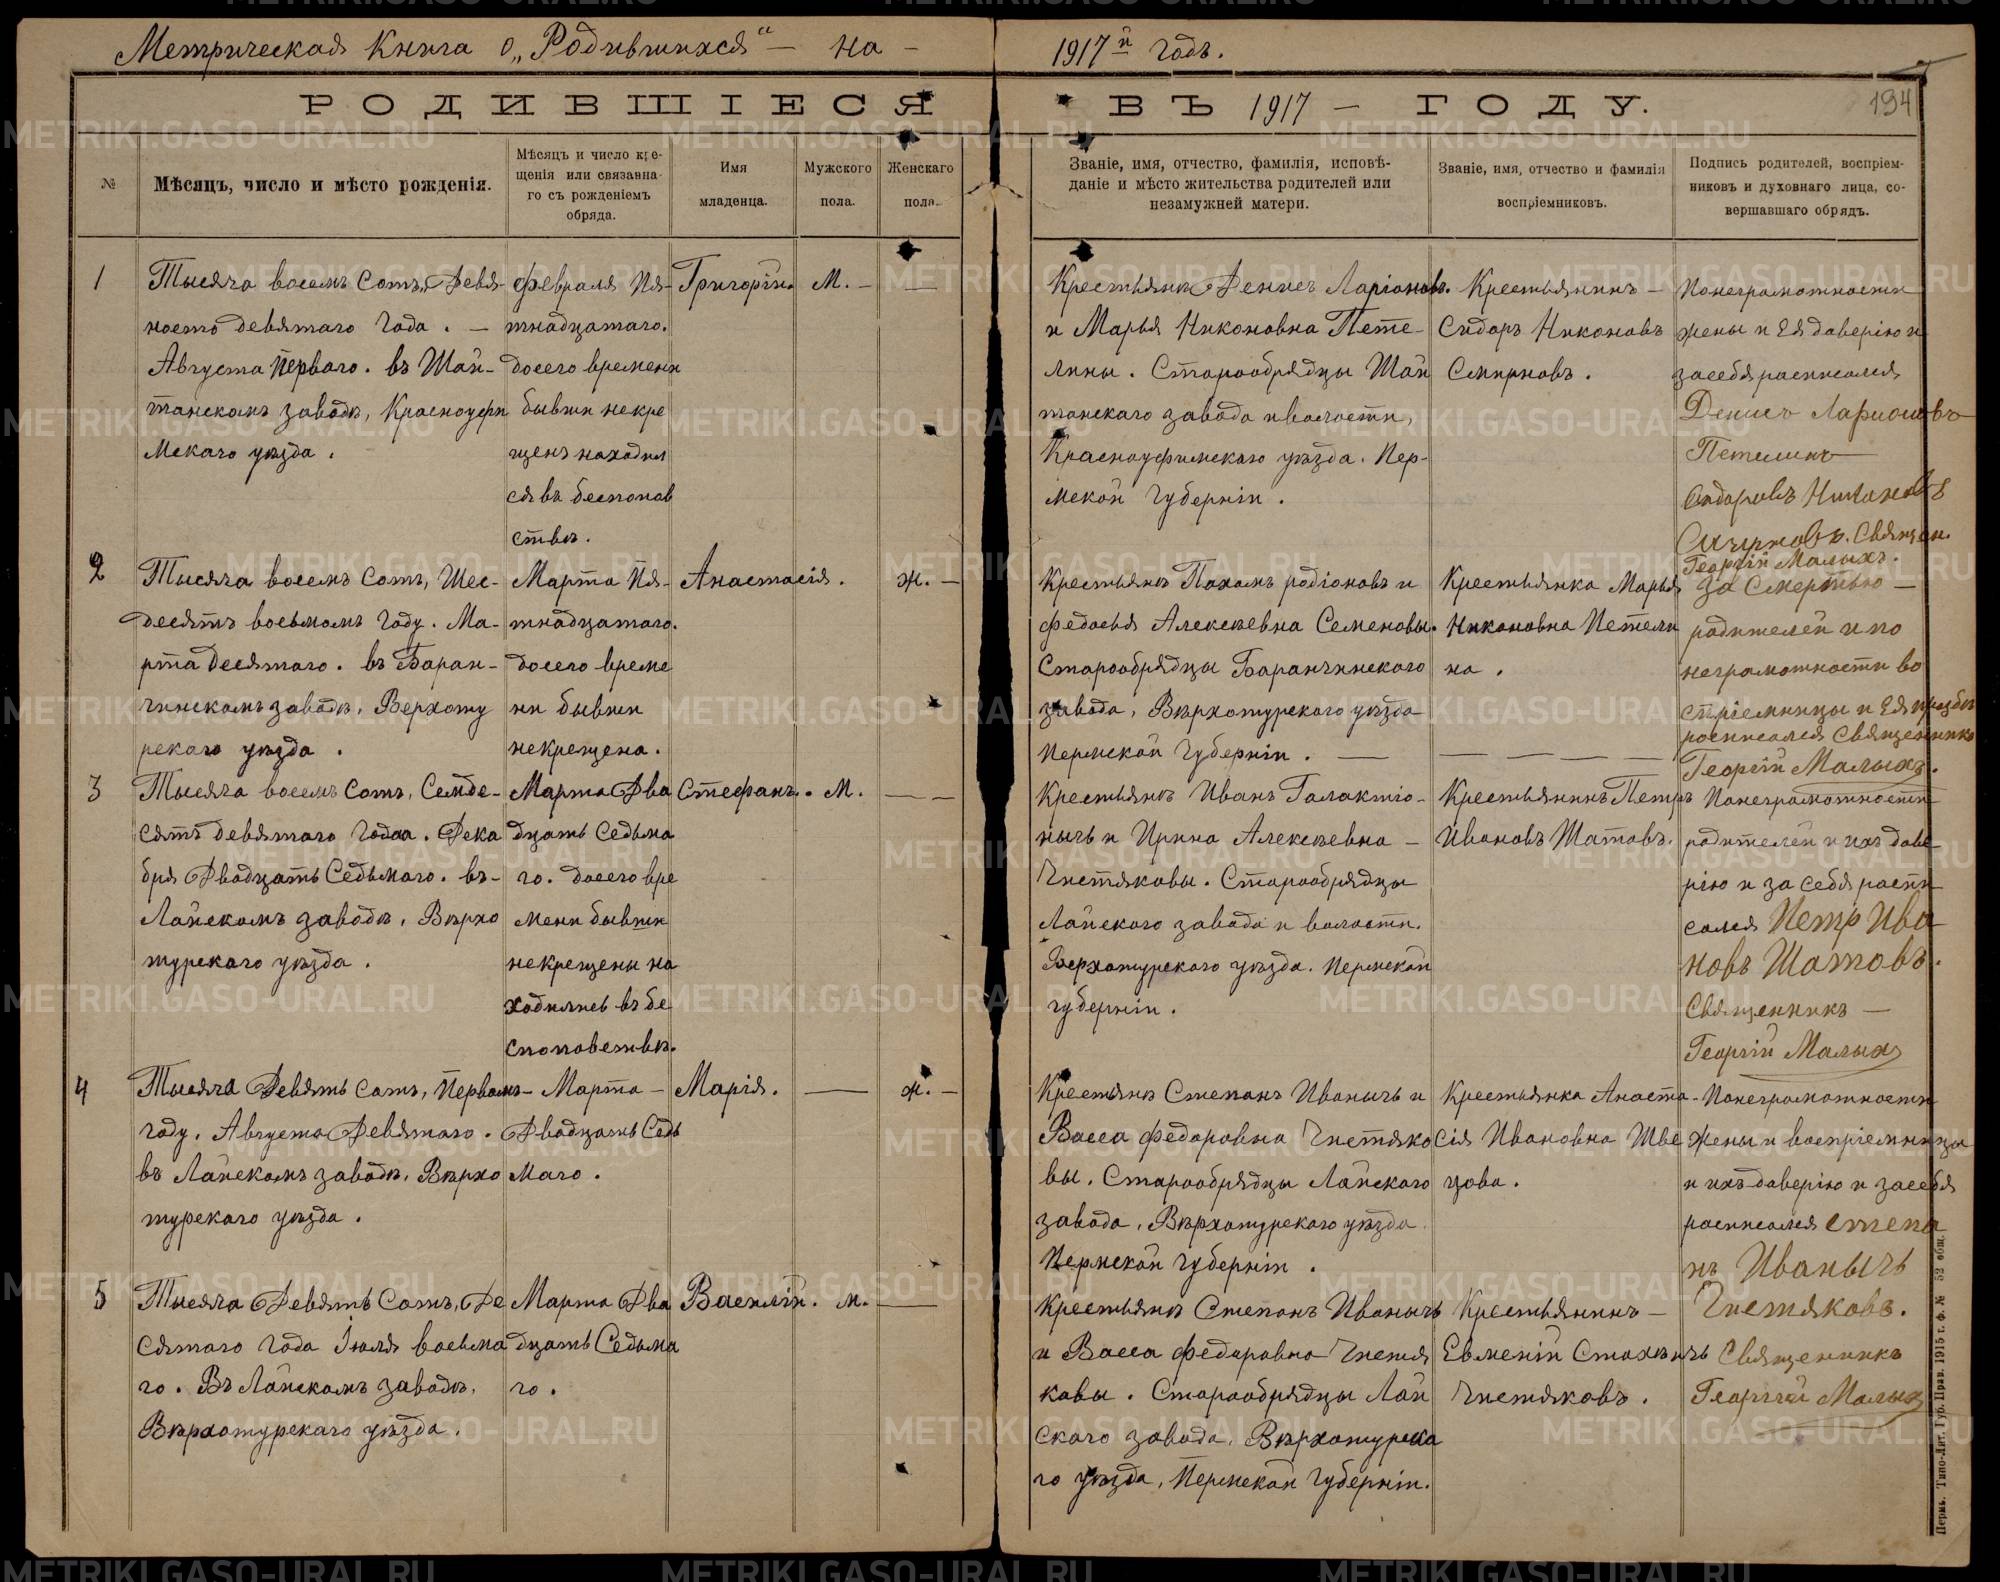 Метрическая Книга о „Родившихся“ — на — 1917й Годъ.
РОДИВШІЕСЯ ВЪ 1917 — ГОДУ.
194
№
Мѣсяцъ, число и мѣсто рожденія.
Мѣсяцъ и число кре-
щенія или связанна-
го съ рожденіемъ
обряда.
Имя
младенца.
Мужского
пола.
Женскаго
пола.
Званіе, имя, отчество, фамилія, исповѣ-
даніе и мѣсто жительства родителей или
незамужней матери.
Званіе, имя, отчество и фамилія
воспріемниковъ.
Подпись родителей, воспріем-
никовъ и духовнаго лица, со-
вершавшаго обрядъ.
1
Тысяча восемъ Сотъ, Девя-
носто девятаго Года. —
Августа Перваго. въ Шай-
танскомъ заводѣ, Красноуфи
мскаго уѣзда.
Февраля Пя-
тнадцатаго.
досего времени
бывши некре
щенъ находил
ся въ беспопов
ствѣ.
Григорій.
М. —
—
Крестьянѣ Денисъ Ларіоновъ.
и Марья Никоновна Пете-
лины. Старообрядцы Шай
танскаго завода и волости,
Красноуфимскаго уѣзда. Пер-
мской Губерніи.
Крестьянинъ —
Сидоръ Никоновъ
Смирновъ.
Понеграмотности
жены и Ея доверію и
засебя расписался
Денисъ Ларионовъ
Петелинъ
Сидоровъ Никоновъ
Смирновъ. Священ.
Георгій Малыхъ.
2
Тысяча восемъ Сотъ, Шес-
десятъ восьмомъ Году. Ма-
рта десятаго. въ Баран-
чинскомъ заводѣ, Верхоту
рскаго уѣзда.
Марта Пя-
тнадцатаго.
досего време
ни бывши
некрещена.
Анастасія.
ж. —
Крестьянѣ Пахомъ родіоновъ и
Федосья Алексѣевна Семеновы.
Старообрядцы Баранчинскаго
завода, Вѣрхотурскаго уѣзда
Пермской Губерніи. —
Крестьянка Марья
Никоновна Петели
на.
— — — —
За Смертью —
родителей и по
неграмотности во
спріемницы и Ея прозбѣ
росписался Священникъ
Георгій Малыхъ.
3
Тысяча восемъ Сотъ, Семде-
сятъ девятаго Года. Дека
бря Двадцать Седьмаго. въ-
Лайскомъ заводѣ, Вѣрхо
турскаго уѣзда.
Марта Два
дцать Седьма
го. досего вре
мени бывши
некрещены на
ходились въ бе
споповствѣ.
Стефанъ.
М.
— —
Крестьянѣ Иванъ Галактіо-
нычъ и Ирина Алексѣевна —
Чистяковы. Старообрядцы
Лайскаго завода и волости.
Верхотурскаго уѣзда. Пермской
губерніи.
Крестьянинъ Петръ
Ивановъ Шатовъ.
Понеграмотности
родителей и ихъ дове-
рію и за себя распи
сался Петр Ива
новъ Шатовъ.
Священникъ —
Георгій Малыхъ
4
Тысяча Девять Сотъ, Первомъ
году. Августа Девятаго.
въ Лайскомъ заводѣ, Вѣрхо
турскаго уѣзда.
— Марта —
Двадцать Седь
маго.
Марія.
—
ж. —
Крестьянѣ Степанъ Иванычъ и
Васса Федоровна Чистяко
вы. Старообрядцы Лайскаго
завода, Вѣрхотурскаго уѣзда.
Пермской Губерніи.
Крестьянка Анаста-
сія Ивановна Шве
цова.
Понеграмотности
жены и воспріемницы
и ихъ доверію и засебя
росписался степа
нъ Иванычъ
Чистяковъ.
Священникъ
Георгій Малыхъ
5
Тысяча Девять Сотъ, Де
сятаго Года Іюля восьма
го. Въ Лайскомъ заводѣ,
Вѣрхотурскаго уѣзда.
Марта Два
дцать Седьма
го.
Василій.
м.
—
Крестьянѣ Степанъ Иванычъ
и Васса Федоровна Чистя
ковы. Старообрядцы Лай
скаго завода, Вѣрхотурска
го уѣзда, Пермской Губерніи.
Крестьянинъ —
Евменій Стахѣичъ
Чистяковъ.
Пермь. Типо-Лит. Губ. Прав. 1915 г. ф. № 52 общ.
METRIKI.GASO-URAL.RU